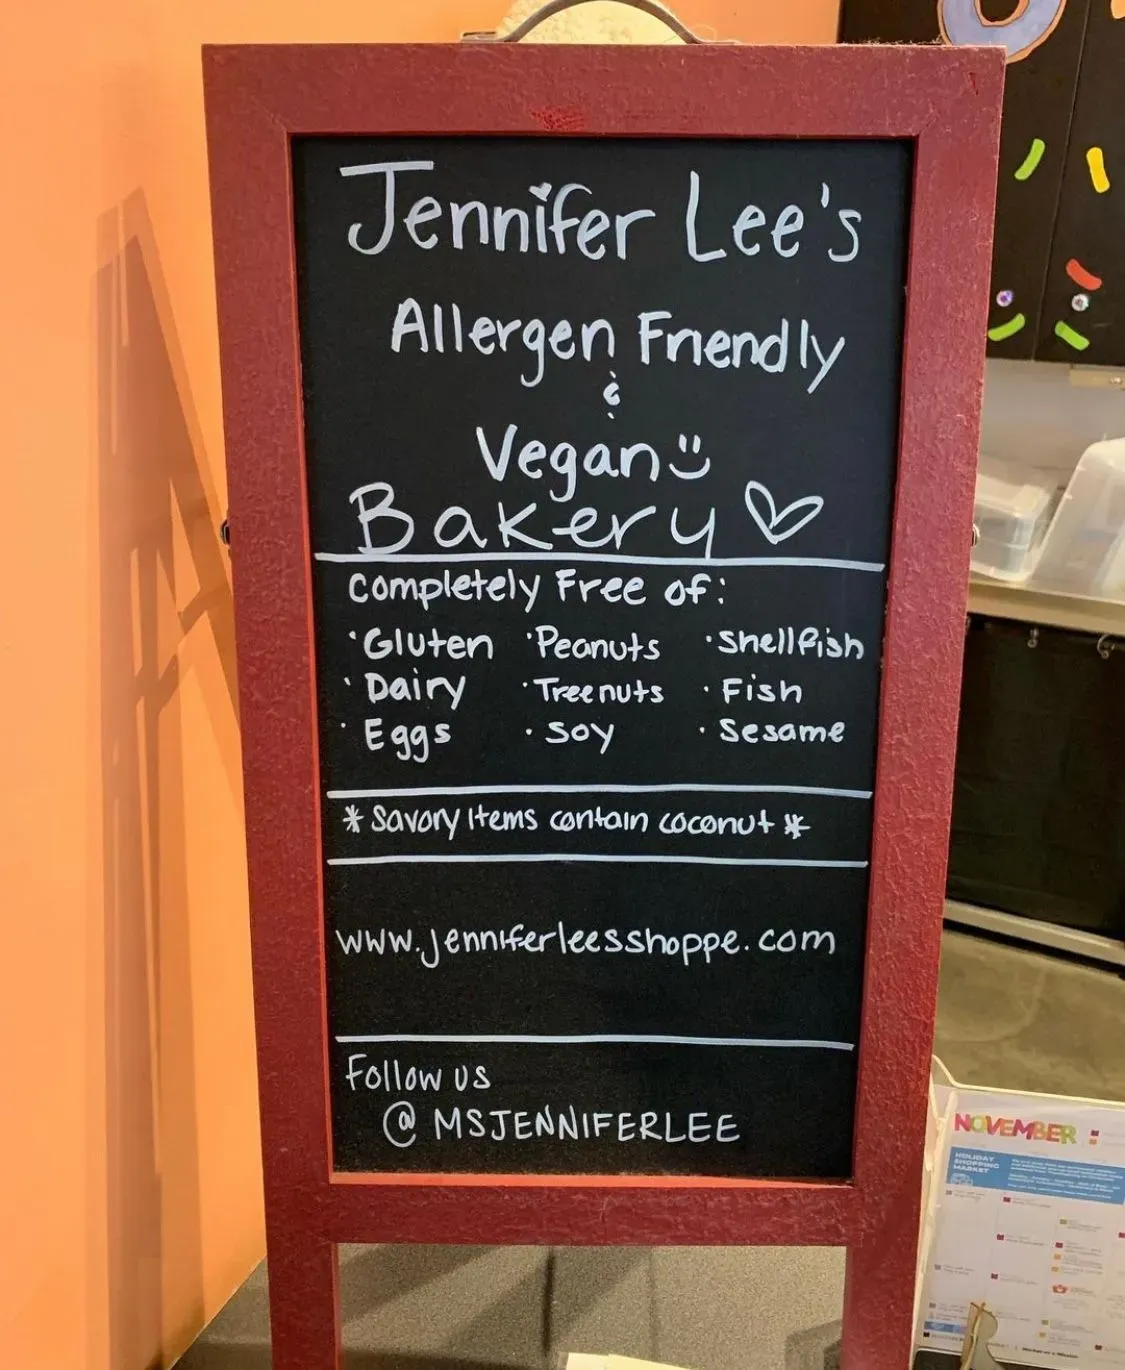 Jennifer Lee's
Allergen Friendly
&
Vegan
Bakery
Completely Free of:
·Gluten ·Peanuts ·Shellfish
·Dairy ·Treenuts ·Fish
·Eggs ·Soy ·Sesame
*Savory items contain coconut*
www.jenniferleesshoppe.com
Follow us
@MSJENNIFERLEE
NOVEMBER
HOLIDAY
SHOPPING
MARKET